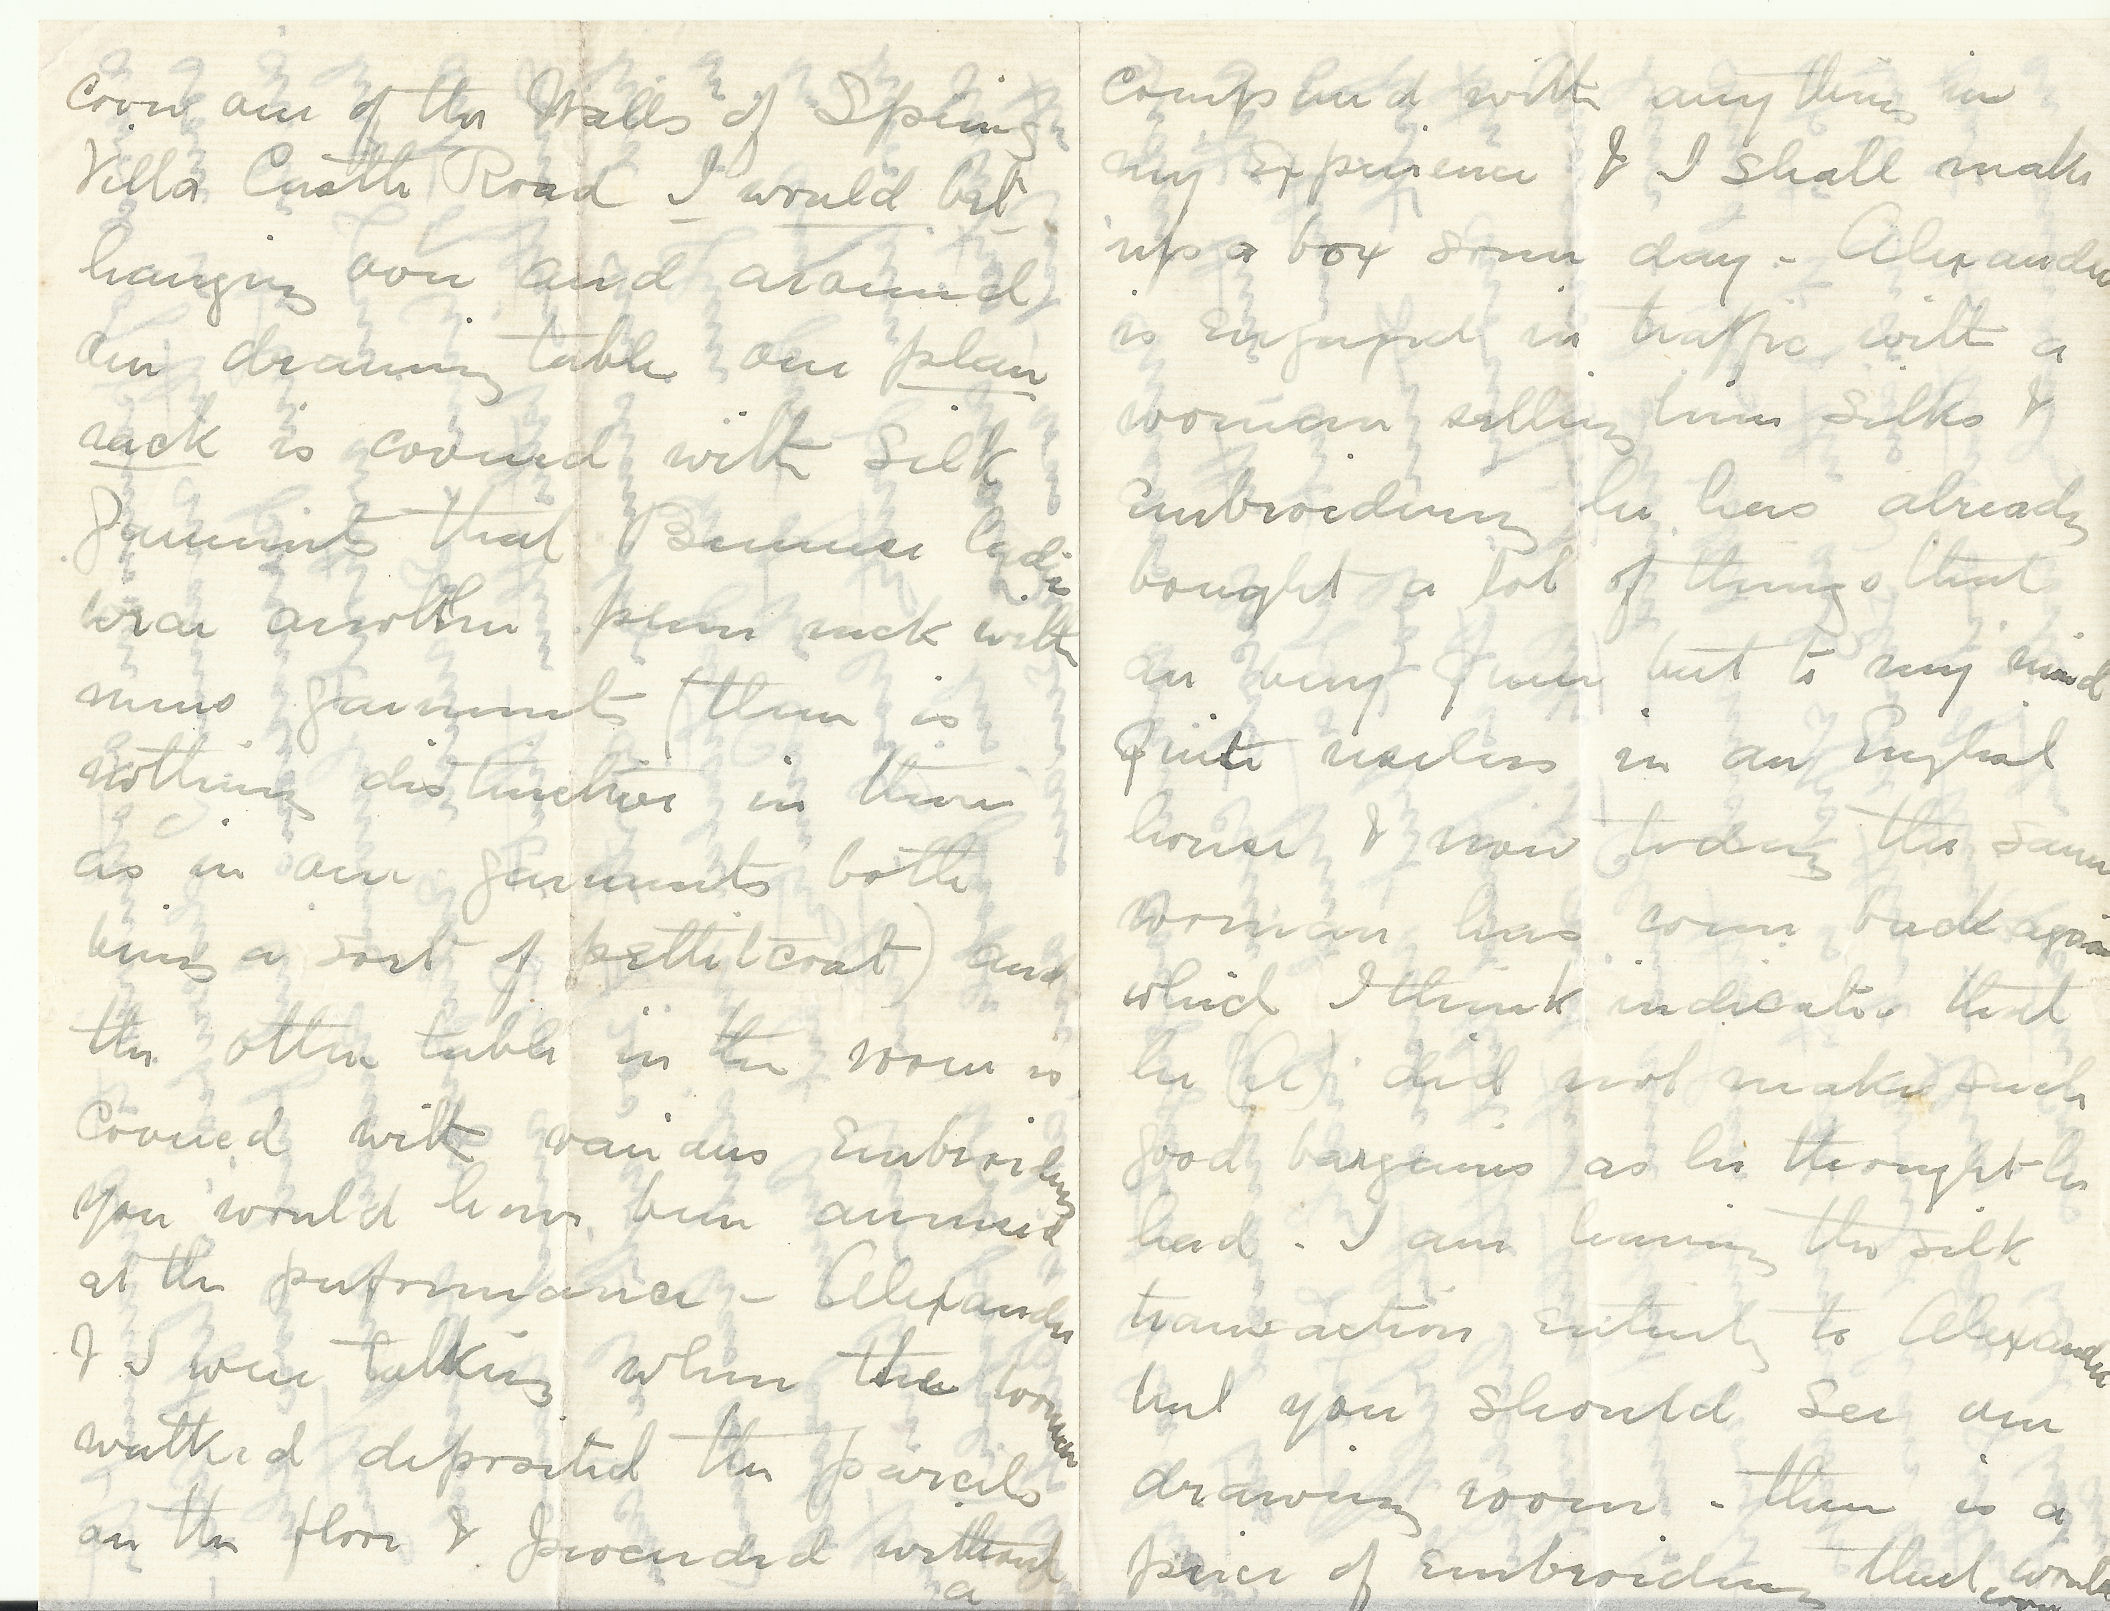 cover one of the Walls of Spring
Villa Castle Road I would bet
hanging over and around
our drawing table our plan
rack is covered with silk
garments that Burmese ladies
wear another plan rack with
mens garments (there is
nothing distinctive in them
as in our garments both
being a sort of pettitcoat) and
the other table in the room is
covered with various Embroidery
you would have been amused
at the performance - Alexander
& I were talking when the woman
walked deposited the parcels
on the floor & proceeded without
a
compound with anything in
my Experience & I shall make
up a box some day - Alexander
is Engaged in traffic with a
woman selling him silks &
Embroidery he has already
bought a lot of things that
are very fine but to my mind
quite useless in an English
house & now today the same
woman has come back again
which I think indicates that
he (A) did not make such
good bargains as he thought he
had. I am leaving the silk
transaction Entirely to Alexander
but you should see our
drawing room - there is a
piece of Embroidery that would
cover